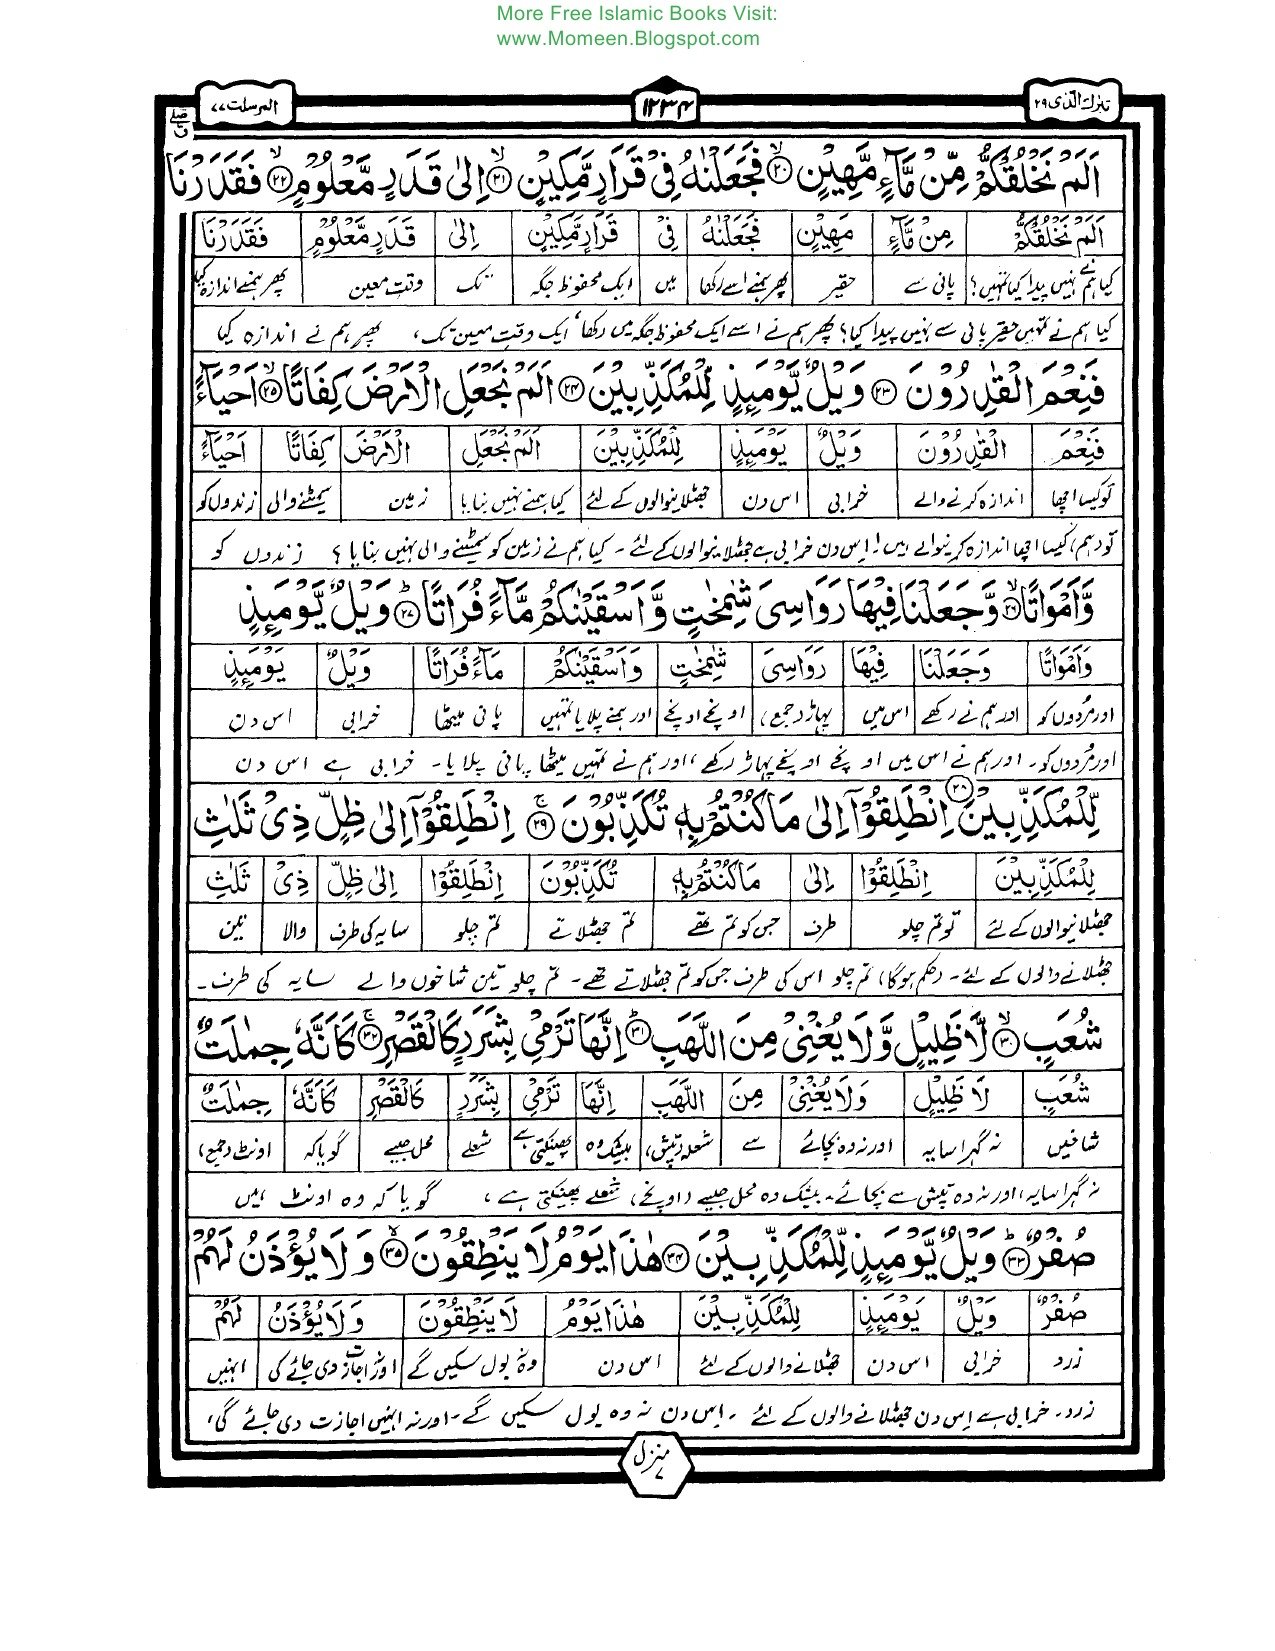 More Free Islamic Books Visit:
www.Momeen.Blogspot.com
تبٰرك الّذی ۲۹
۱۲۳۴
المرسلت ۷۷
اَلَمْ نَخْلُقْكُّمْ مِّنْ مَّآءٍ مَّهِيْنٍ ﴿۲۰﴾ فَجَعَلْنٰهُ فِيْ قَرَارٍ مَّكِيْنٍ ﴿۲۱﴾ اِلٰى قَدَرٍ مَّعْلُوْمٍ ﴿۲۲﴾ فَقَدَرْنَا
اَلَمْ نَخْلُقْكُّمْ مِنْ مَّآءٍ مَهِيْنٍ فَجَعَلْنٰهُ فِيْ قَرَارٍ مَّكِيْنٍ اِلٰى قَدَرٍ مَّعْلُوْمٍ فَقَدَرْنَا
کیا ہمنے نہیں پیدا کیا تمہیں؟ پانی سے حقیر پھر ہمنے اسے رکھا میں ایک محفوظ جگہ تک وقت معین پھر ہمنے اندازہ کیا
کیا ہم نے تمہیں حقیر پانی سے نہیں پیدا کیا؟ پھر ہم نے اسے ایک محفوظ جگہ میں رکھا، ایک وقت معین تک، پھر ہم نے اندازہ کیا
فَنِعْمَ الْقٰدِرُوْنَ ﴿۲۳﴾ وَيْلٌ يَّوْمَئِذٍ لِّلْمُكَذِّبِيْنَ ﴿۲۴﴾ اَلَمْ نَجْعَلِ الْاَرْضَ كِفَاتًا ﴿۲۵﴾ اَحْيَآءً
فَنِعْمَ الْقٰدِرُوْنَ وَيْلٌ يَوْمَئِذٍ لِلْمُكَذِّبِيْنَ اَلَمْ نَجْعَلِ الْاَرْضَ كِفَاتًا اَحْيَآءً
تو کیسا اچھا اندازہ کرنے والے خرابی اس دن جھٹلانیوالوں کے لئے کیا ہمنے نہیں بنایا زمین سمیٹنے والی زندوں کو
تو (ہم) کیسا اچھا اندازہ کرنیوالے ہیں! اس دن خرابی ہے جھٹلانیوالوں کے لئے۔ کیا ہم نے زمین کو سمیٹنے والی نہیں بنایا؟ زندوں کو
وَّاَمْوَاتًا ﴿۲۶﴾ وَّجَعَلْنَا فِيْهَا رَوَاسِيَ شٰمِخٰتٍ وَّاَسْقَيْنٰكُمْ مَّآءً فُرَاتًا ﴿۲۷﴾ وَيْلٌ يَّوْمَئِذٍ
وَاَمْوَاتًا وَجَعَلْنَا فِيْهَا رَوَاسِيَ شٰمِخٰتٍ وَاَسْقَيْنٰكُمْ مَآءً فُرَاتًا وَيْلٌ يَوْمَئِذٍ
اور مُردوں کو اور ہم نے رکھے اس میں پہاڑ (جمع) اونچے اونچے اور ہمنے پلایا تمہیں پانی میٹھا خرابی اس دن
اور مُردوں کو۔ اور ہم نے اس میں اونچے اونچے پہاڑ رکھے، اور ہم نے تمہیں میٹھا پانی پلایا۔ خرابی ہے اس دن
لِّلْمُكَذِّبِيْنَ ﴿۲۸﴾ اِنْطَلِقُوْٓا اِلٰى مَا كُنْتُمْ بِهٖ تُكَذِّبُوْنَ ﴿۲۹﴾ اِنْطَلِقُوْٓا اِلٰى ظِلٍّ ذِيْ ثَلٰثِ
لِلْمُكَذِّبِيْنَ اِنْطَلِقُوْٓا اِلٰى مَا كُنْتُمْ بِهٖ تُكَذِّبُوْنَ اِنْطَلِقُوْٓا اِلٰى ظِلٍّ ذِيْ ثَلٰثِ
جھٹلانیوالوں کے لئے تو تم چلو طرف جس کو تم تھے تم جھٹلاتے تم چلو سایہ کی طرف والا تین
جھٹلانے والوں کے لئے۔ (حکم ہوگا) تم چلو اس کی طرف جس کو تم جھٹلاتے تھے۔ تم چلو تین شاخوں والے سایہ کی طرف۔
شُعَبٍ ﴿۳۰﴾ لَّا ظَلِيْلٍ وَّلَا يُغْنِيْ مِنَ اللَّهَبِ ﴿۳۱﴾ اِنَّهَا تَرْمِيْ بِشَرَرٍ كَالْقَصْرِ ﴿۳۲﴾ كَاَنَّهٗ جِمٰلَتٌ
شُعَبٍ لَا ظَلِيْلٍ وَلَا يُغْنِيْ مِنَ اللَّهَبِ اِنَّهَا تَرْمِيْ بِشَرَرٍ كَالْقَصْرِ كَاَنَّهٗ جِمٰلَتٌ
شاخیں نہ گہرا سایہ اور نہ وہ بچائے سے شعلہ (تپش) بیشک وہ پھینکتی ہے شعلے محل جیسے گویا کہ اونٹ (جمع)
نہ گہرا سایہ، اور نہ وہ تپش سے بچائے۔ بیشک وہ محل جیسے (اونچے) شعلے پھینکتی ہے، گویا کہ وہ اونٹ ہیں
صُفْرٌ ﴿۳۳﴾ وَيْلٌ يَّوْمَئِذٍ لِّلْمُكَذِّبِيْنَ ﴿۳۴﴾ هٰذَا يَوْمُ لَا يَنْطِقُوْنَ ﴿۳۵﴾ وَلَا يُؤْذَنُ لَهُمْ
صُفْرٌ وَيْلٌ يَوْمَئِذٍ لِلْمُكَذِّبِيْنَ هٰذَا يَوْمُ لَا يَنْطِقُوْنَ وَلَا يُؤْذَنُ لَهُمْ
زرد خرابی اس دن جھٹلانے والوں کے لئے اس دن وہ نہ بول سکیں گے اور نہ اجازت دی جائے گی انہیں
زرد۔ خرابی ہے اس دن جھٹلانے والوں کے لئے۔ اس دن نہ وہ بول سکیں گے۔ اور نہ انہیں اجازت دی جائے گی،
منزل
۷